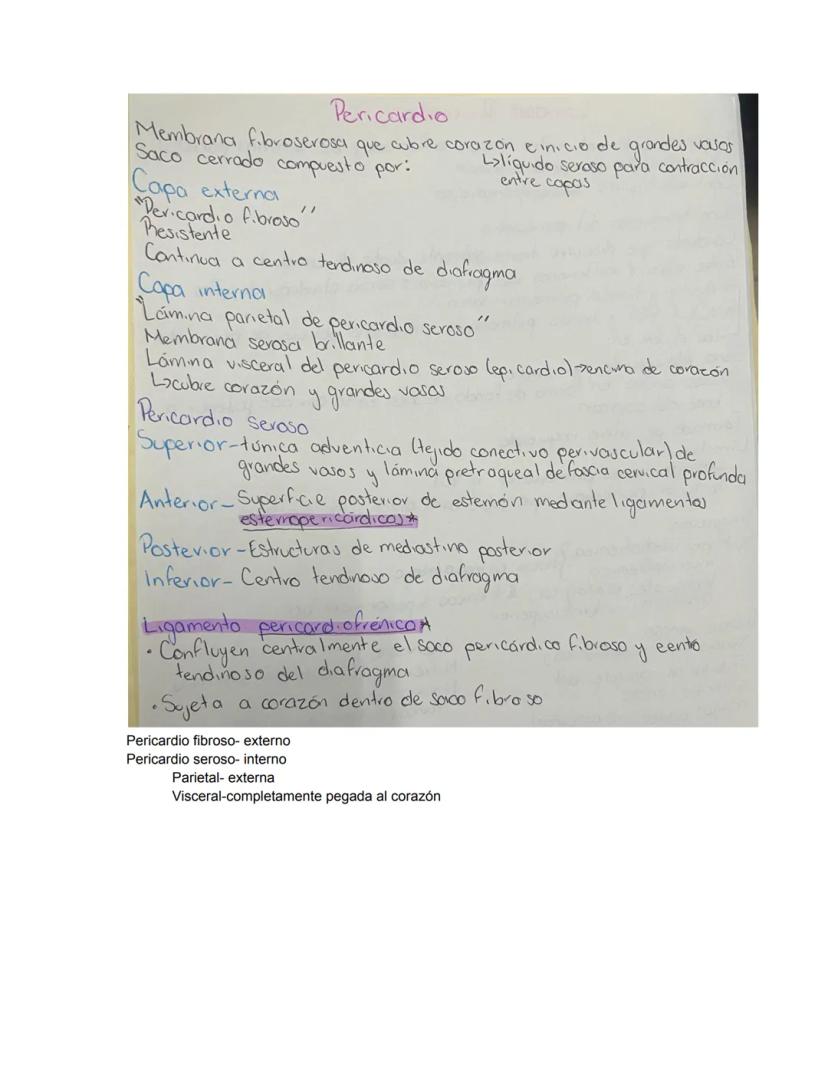 Pericardio
Membrana fibroserosa que cubre corazón e inicio de grandes vasos
Saco cerrado compuesto por:
↳líquido seroso para contracción
entre capas
Capa externa
"Pericardio fibroso"
Resistente
Continua a centro tendinoso de diafragma
Capa interna
"Lámina parietal de pericardio seroso"
Membrana serosa brillante
Lámina visceral del pericardio seroso (epicardio)→encima de corazón
↳cubre corazón y grandes vasos
Pericardio seroso
Superior-túnica adventicia (tejido conectivo perivascular) de
grandes vasos y lámina pretraqueal de fascia cervical profunda
Anterior- Superficie posterior de esternón mediante ligamentos
esternopericárdicos*
Posterior-Estructuras de mediastino posterior
Inferior- Centro tendinoso de diafragma
Ligamento pericardiofrénico*
• Confluyen centralmente el saco pericárdico fibroso y centro
tendinoso del diafragma
• Sujeta a corazón dentro de saco fibroso
Pericardio fibroso- externo
Pericardio seroso- interno
Parietal- externa
Visceral-completamente pegada al corazón